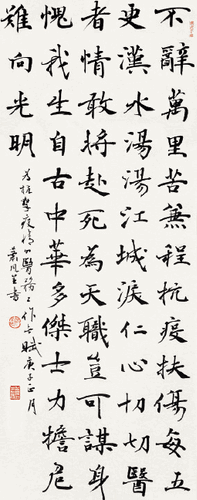 不辭萬里苦兼程抗疫扶傷每五
更漢水湯湯江城淚仁心切切醫
者情敢將赴死為天職豈可謀身
愧我生自古中華多傑士力擔危
難向光明
抗擊疫情醫務工作者賦庚子正月
書